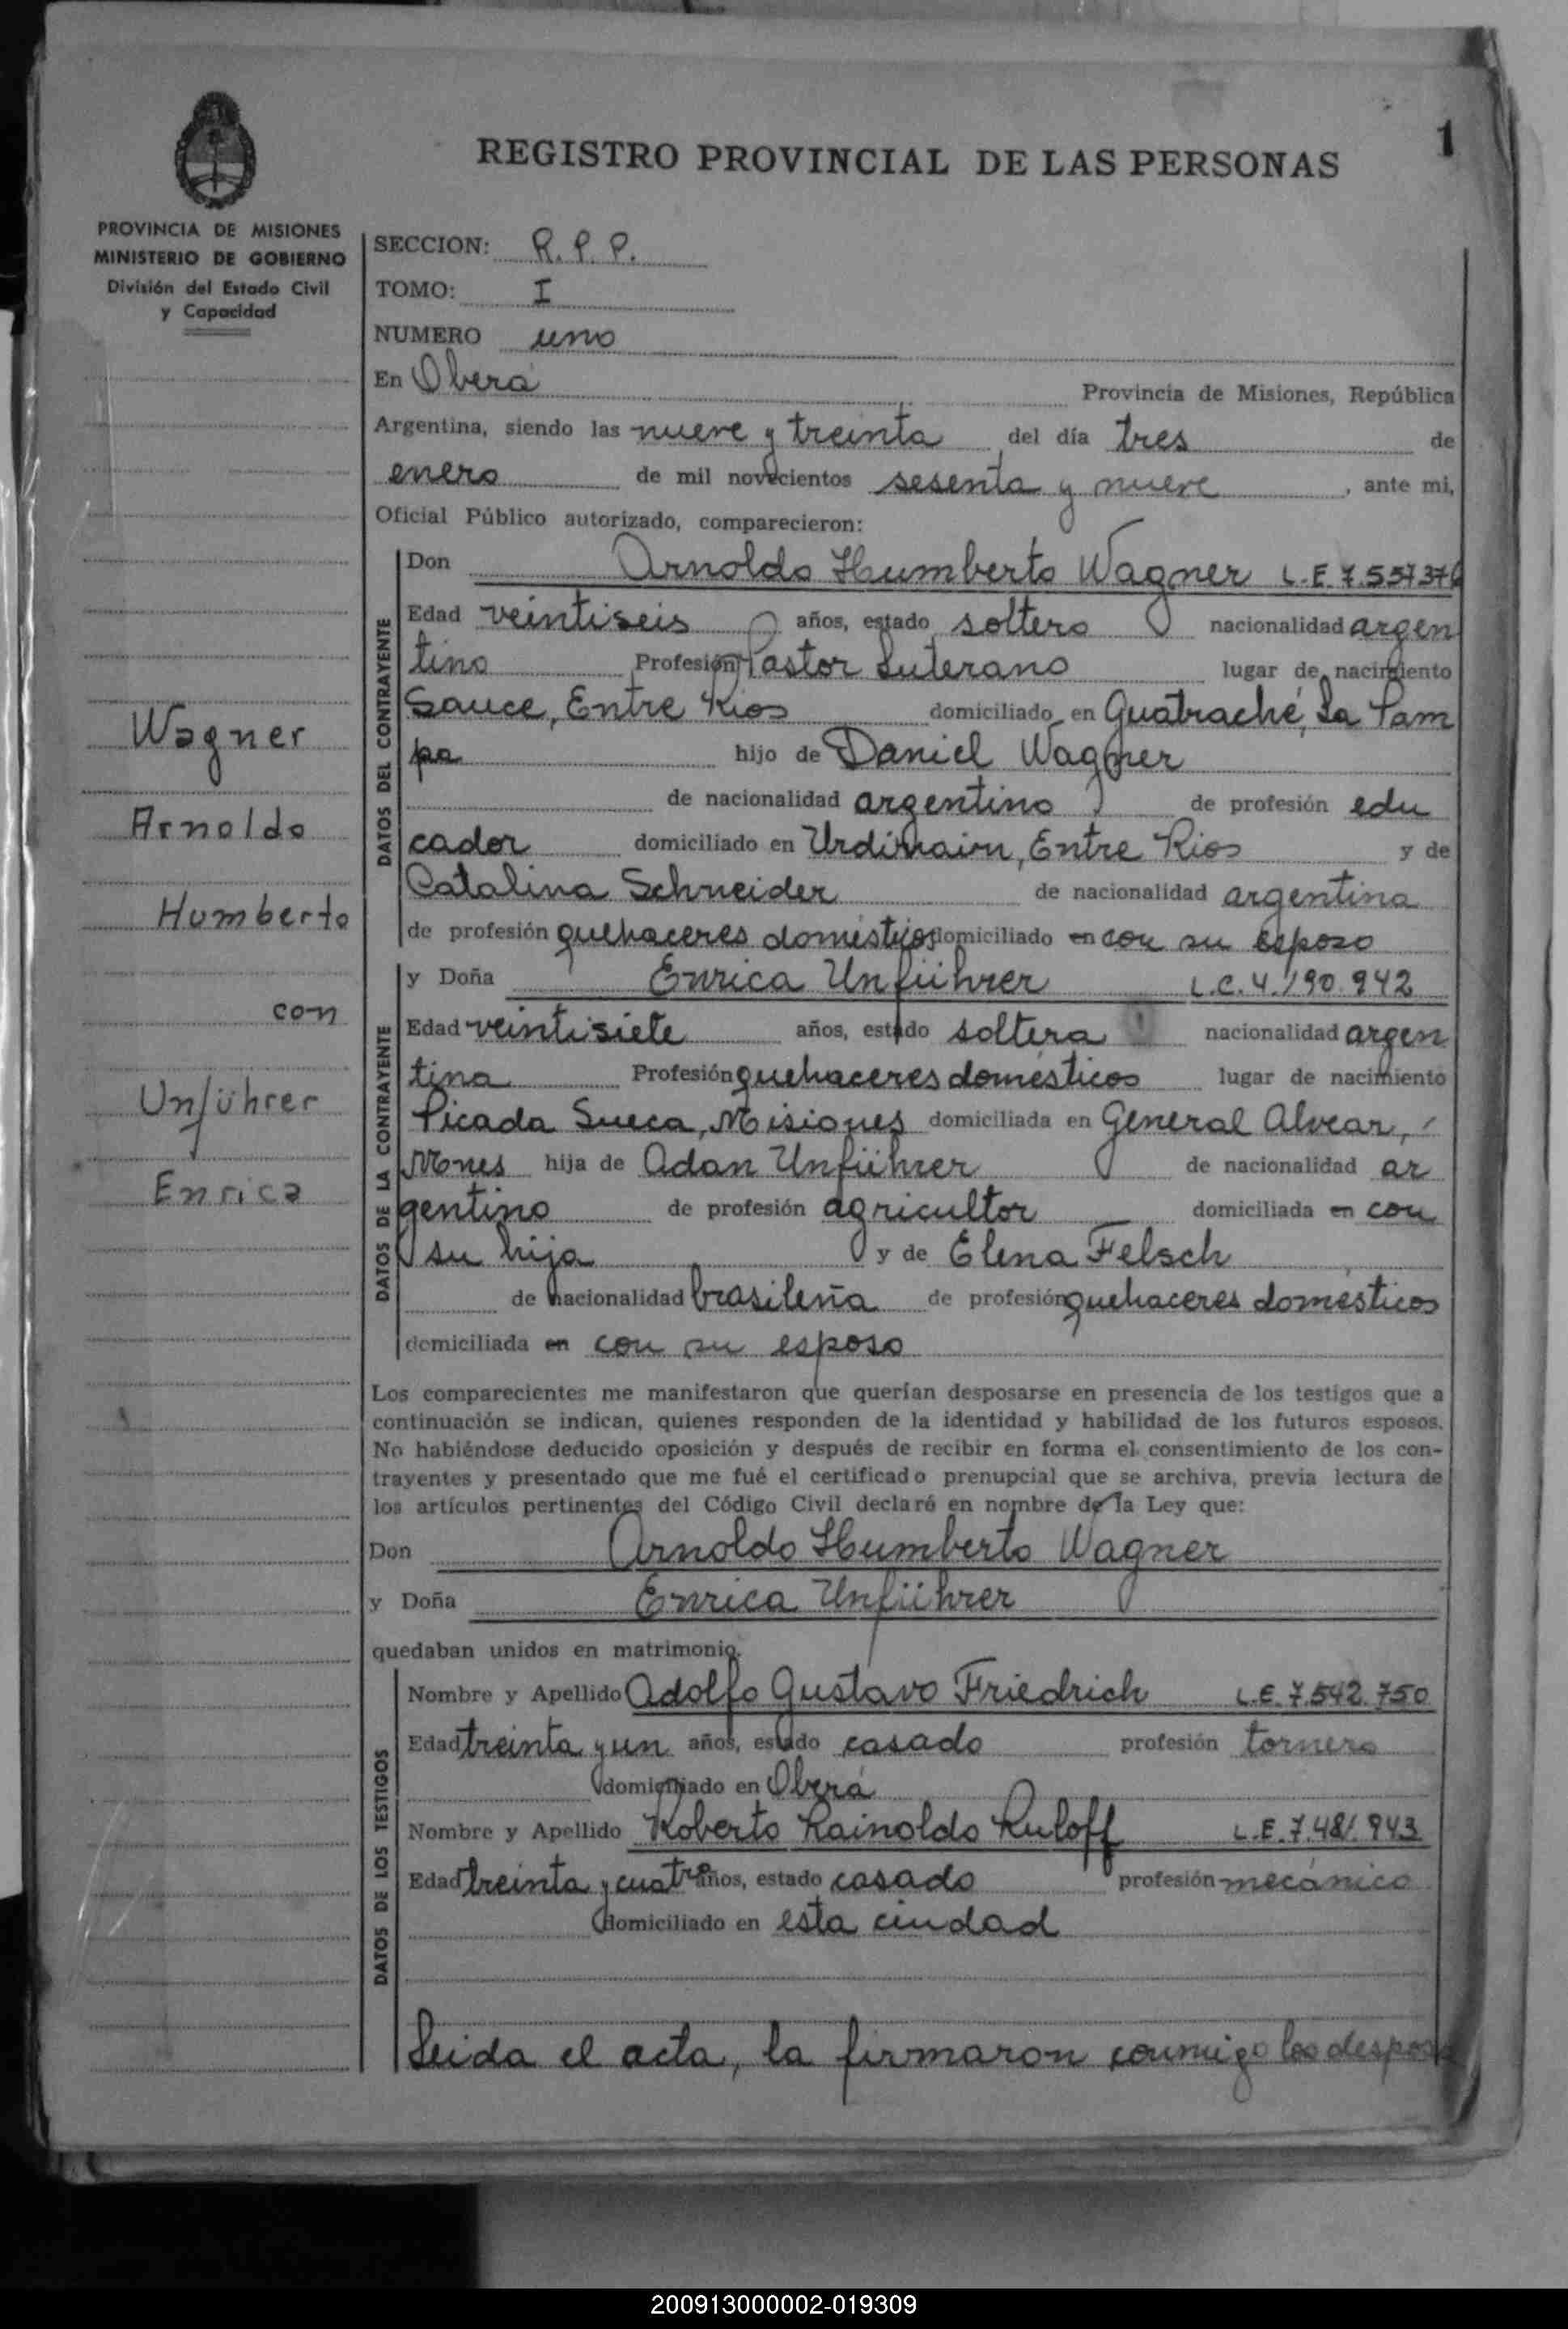 1
REGISTRO PROVINCIAL DE LAS PERSONAS
PROVINCIA DE MISIONES
MINISTERIO DE GOBIERNO
División del Estado Civil
y Capacidad
SECCION: R. P. P.
TOMO: I
NUMERO uno
En Oberá Provincia de Misiones, República
Argentina, siendo las nueve y treinta del día tres de
enero de mil novecientos sesenta y nueve, ante mi,
Oficial Público autorizado, comparecieron:
DATOS DEL CONTRAYENTE
Don Arnoldo Humberto Wagner L.E. 7.557376
Edad veintiseis años, estado soltero nacionalidad argen
tino Profesión Pastor Luterano lugar de nacimiento
Sauce, Entre Rios domiciliado en Guatraché, La Pam
pa hijo de Daniel Wagner
de nacionalidad argentino de profesión edu
cador domiciliado en Urdinain, Entre Rios y de
Catalina Schneider de nacionalidad argentina
de profesión quehaceres domésticos domiciliado en con su esposo
DATOS DE LA CONTRAYENTE
y Doña Enrica Unführer L.C. 4.190.942
Edad veintisiete años, estado soltera nacionalidad argen
tina Profesión quehaceres domésticos lugar de nacimiento
Picada Sueca, Misiones domiciliada en General Alvear,
Mnes hija de Adan Unführer de nacionalidad ar
gentino de profesión agricultor domiciliada en con
su hija y de Elena Felsch
de nacionalidad brasileña de profesión quehaceres domésticos
domiciliada en con su esposo
Los comparecientes me manifestaron que querían desposarse en presencia de los testigos que a
continuación se indican, quienes responden de la identidad y habilidad de los futuros esposos.
No habiéndose deducido oposición y después de recibir en forma el consentimiento de los con-
trayentes y presentado que me fué el certificado prenupcial que se archiva, previa lectura de
los artículos pertinentes del Código Civil declaré en nombre de la Ley que:
Don Arnoldo Humberto Wagner
y Doña Enrica Unführer
quedaban unidos en matrimonio.
DATOS DE LOS TESTIGOS
Nombre y Apellido Adolfo Gustavo Friedrich L.E. 7.542.750
Edad treinta y un años, estado casado profesión tornero
domiciliado en Oberá
Nombre y Apellido Roberto Rainoldo Ruloff L.E. 7.481.943
Edad treinta y cuatro años, estado casado profesión mecánico
domiciliado en esta ciudad
Leida el acta, la firmaron conmigo los despos
Wagner
Arnoldo
Humberto
con
Unführer
Enrica
200913000002-019309